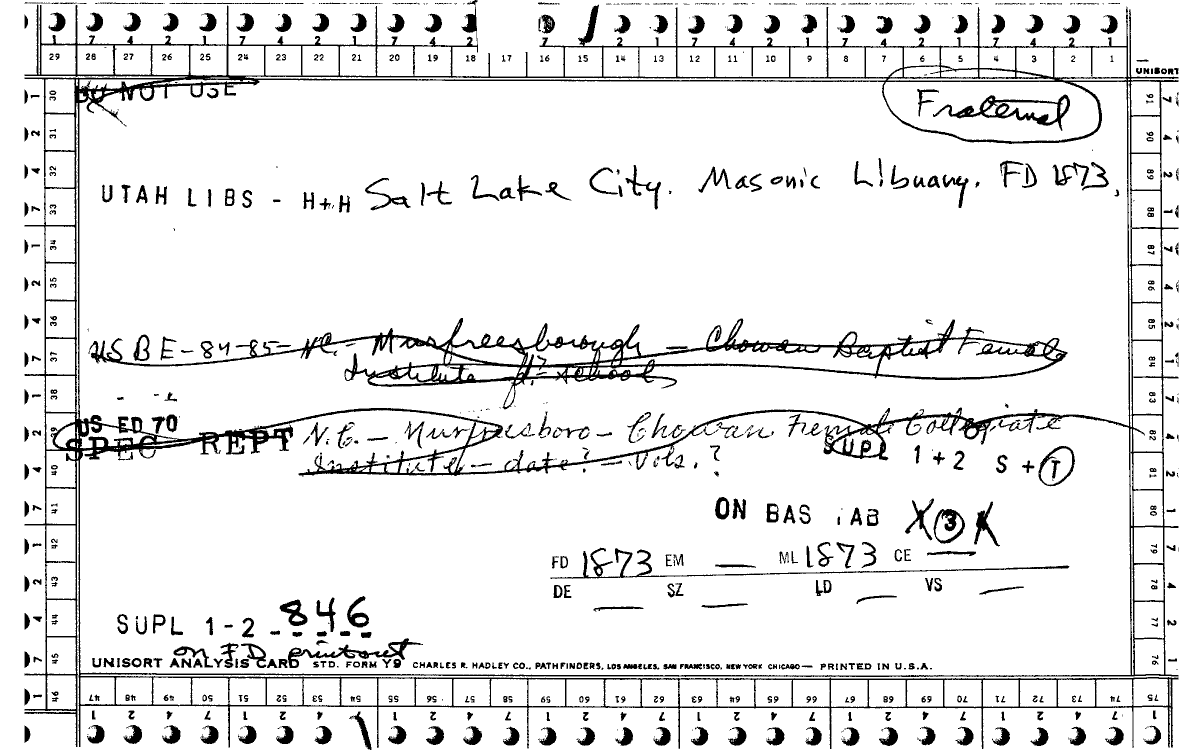 29 28 27 26 25 24 23 22 21 20 19 18 17 16 15 14 13 12 11 10 9 8 7 6 5 4 3 2 1
UNISORT
DO NOT USE
Fraternal
UTAH LIBS - H+H Salt Lake City. Masonic Library. FD 1873,
USBE-84-85- NC. - Murfreesborough - Chowan Baptist Female
Institute fd? school
US ED 70
SPEC REPT N.C. - Murfreesboro - Chowan Female Collegiate
Institute - date? - Vols.?
SUPL 1+2 S+T
ON BAS TAB X 3 X
FD 1873 EM — ML 1873 CE —
DE — SZ — LD — VS —
SUPL 1-2 - 846
on FD printout
UNISORT ANALYSIS CARD STD. FORM Y9 CHARLES R. HADLEY CO., PATHFINDERS, LOS ANGELES, SAN FRANCISCO, NEW YORK CHICAGO — PRINTED IN U.S.A.
47 48 49 50 51 52 53 54 55 56 57 58 59 60 61 62 63 64 65 66 67 68 69 70 71 72 73 74 75